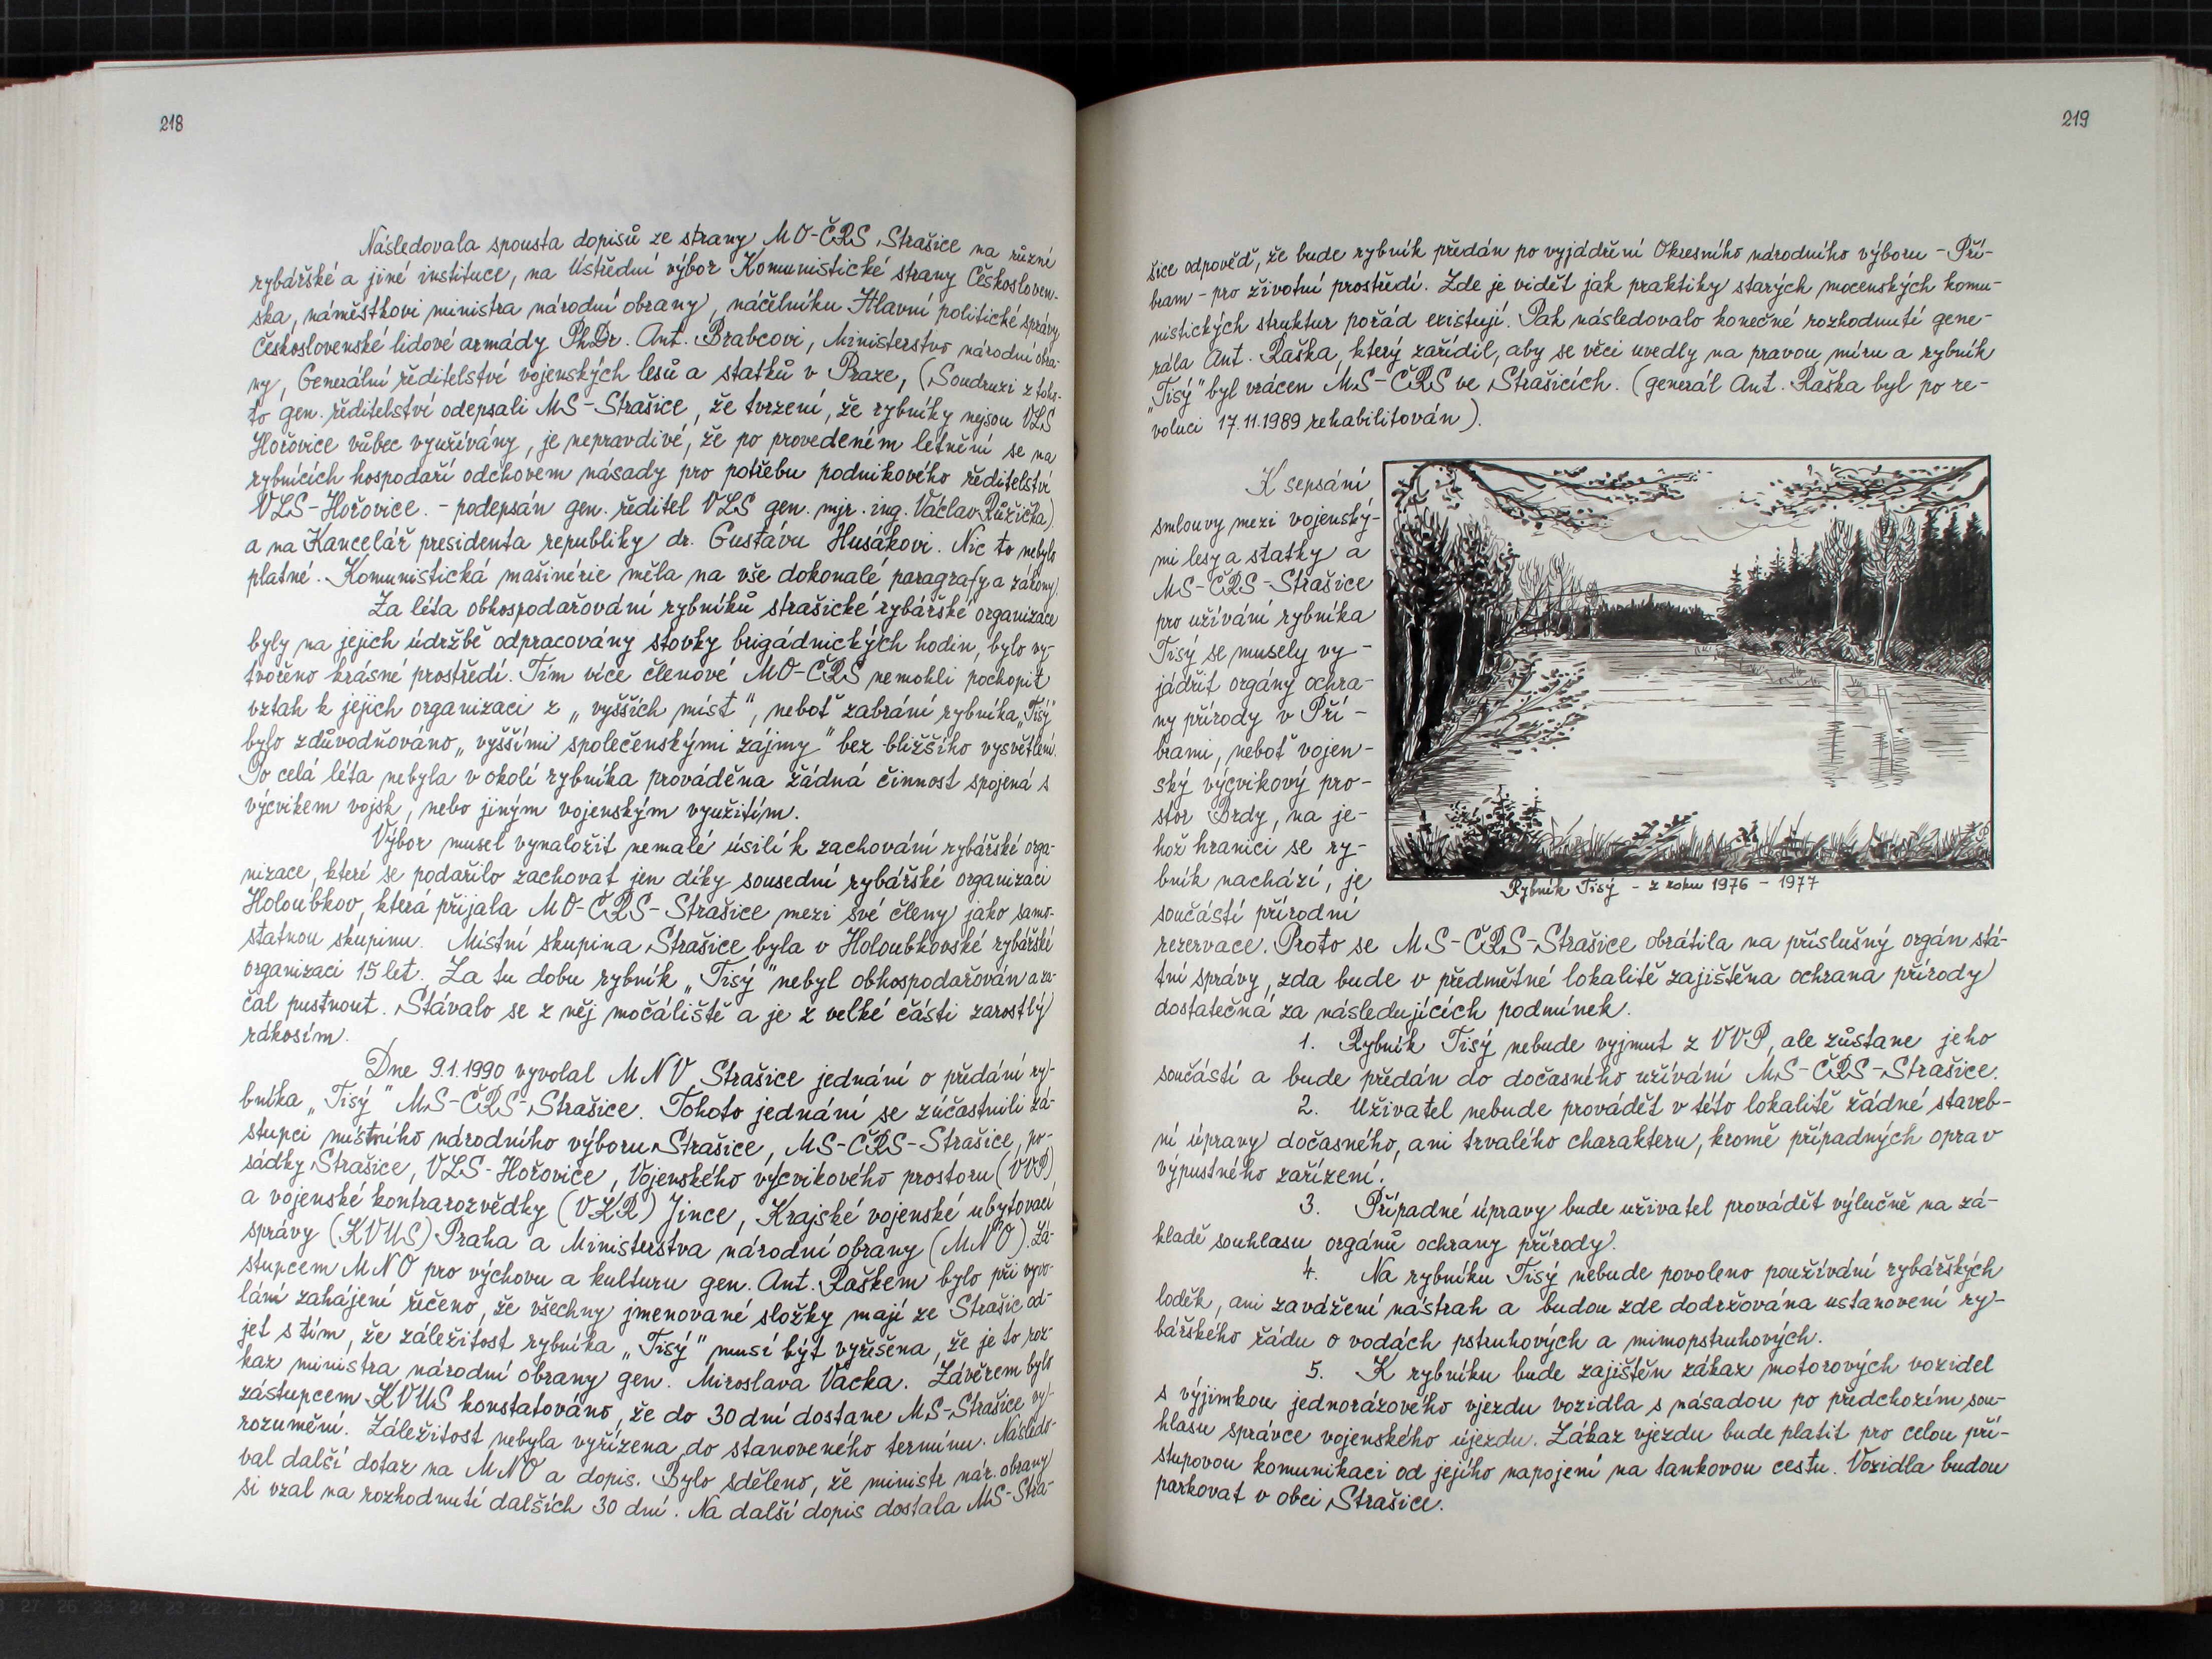 218
Následovala spousta dopisů ze strany MO-ČRS Strašice na různé
rybářské a jiné instituce, na Ústřední výbor Komunistické strany Českosloven-
ska, náměstkovi ministra národní obrany, náčelníku Hlavní politické správy
Československé lidové armády PhDr. Ant. Brabcovi, Ministerstvo národní obra-
ny, Generální ředitelství vojenských lesů a statků v Praze, (Soudruzi z toho-
to gen. ředitelství odepsali MS-Strašice, že tvrzení, že rybníky nejsou VLS
Hořovice vůbec využívány, je nepravdivé, že po provedeném letnění se na
rybnících hospodaří odchovem násady pro potřebu podnikového ředitelství
VLS-Hořovice. - podepsán gen. ředitel VLS gen. mjr. ing. Václav Růžička)
a na Kancelář presidenta republiky dr. Gustávu Husákovi. Nic to nebylo
platné. Komunistická mašinérie měla na vše dokonalé paragrafy a zákony.
Za léta obhospodařování rybníků strašické rybářské organizace
byly na jejich údržbě odpracovány stovky brigádnických hodin, bylo vy-
tvořeno krásné prostředí. Tím více členové MO-ČRS nemohli pochopit
vztah k jejich organizaci z „vyšších míst", neboť zabrání rybníka „Tisý"
bylo zdůvodňováno „vyššími společenskými zájmy" bez bližšího vysvětlení.
Po celá léta nebyla v okolí rybníka prováděna žádná činnost spojená s
výcvikem vojsk, nebo jiným vojenským využitím.
Výbor musel vynaložit nemalé úsilí k zachování rybářské orga-
nizace, které se podařilo zachovat jen díky sousední rybářské organizaci
Holoubkov, která přijala MO-ČRS-Strašice mezi své členy jako samo-
statnou skupinu. Místní skupina Strašice byla v Holoubkovské rybářské
organizaci 15 let. Za tu dobu rybník „Tisý" nebyl obhospodařován a za-
čal pustnout. Stávalo se z něj močáliště a je z velké části zarostlý
rákosím.
Dne 9.1.1990 vyvolal MNV Strašice jednání o předání ry-
bníka „Tisý" MS-ČRS-Strašice. Tohoto jednání se zúčastnili zá-
stupci místního národního výboru Strašice, MS-ČRS-Strašice, po-
sádky Strašice, VLS-Hořovice, Vojenského výcvikového prostoru (VVP)
a vojenské kontrarozvědky (VKR) Jince, Krajské vojenské ubytovací
správy (KVUS) Praha a Ministerstva národní obrany (MNO). Zá-
stupcem MNO pro výchovu a kulturu gen. Ant. Raškem bylo při vyvo-
lání zahájení řečeno, že všechny jmenované složky mají ze Strašic od-
jet s tím, že záležitost rybníka „Tisý" musí být vyřešena, že je to roz-
kaz ministra národní obrany gen. Miroslava Vacka. Závěrem bylo
zástupcem KVUS konstatováno, že do 30 dní dostane MS-Strašice vy-
rozumění. Záležitost nebyla vyřízena do stanoveného termínu. Následo-
val další dotaz na MNO a dopis. Bylo sděleno, že ministr nár. obrany
si vzal na rozhodnutí dalších 30 dní. Na další dopis dostala MS-Stra-
219
šice odpověď, že bude rybník předán po vyjádření Okresního národního výboru - Pří-
bram - pro životní prostředí. Zde je vidět jak praktiky starých mocenských komu-
nistických struktur pořád existují. Pak následovalo konečné rozhodnutí gene-
rála Ant. Raška, který zařídil, aby se věci uvedly na pravou míru a rybník
„Tisý" byl vrácen MS-ČRS ve Strašicích. (generál Ant. Raška byl po re-
voluci 17.11.1989 rehabilitován).
K sepsání
smlouvy mezi vojenský-
mi lesy a statky a
MS-ČRS-Strašice
pro užívání rybníka
Tisý se musely vy-
jádřit orgány ochra-
ny přírody v Pří-
brami, neboť vojen-
ský výcvikový pro-
stor Brdy, na je-
hož hranici se ry-
bník nachází, je
součástí přírodní
Rybník Tisý - z roku 1976 - 1977
rezervace. Proto se MS-ČRS-Strašice obrátila na příslušný orgán stá-
tní správy, zda bude v předmětné lokalitě zajištěna ochrana přírody
dostatečná za následujících podmínek.
1. Rybník Tisý nebude vyjmut z VVP, ale zůstane jeho
součástí a bude předán do dočasného užívání MS-ČRS-Strašice.
2. Uživatel nebude provádět v této lokalitě žádné staveb-
ní úpravy dočasného, ani trvalého charakteru, kromě případných oprav
výpustného zařízení.
3. Případné úpravy bude uživatel provádět výlučně na zá-
kladě souhlasu orgánů ochrany přírody.
4. Na rybníku Tisý nebude povoleno používání rybářských
loděk, ani zavážení nástrah a budou zde dodržována ustanovení ry-
bářského řádu o vodách pstruhových a mimopstruhových.
5. K rybníku bude zajištěn zákaz motorových vozidel
s výjimkou jednorázového vjezdu vozidla s násadou po předchozím sou-
hlasu správce vojenského újezdu. Zákaz vjezdu bude platit pro celou pří-
stupovou komunikaci od jejího napojení na tankovou cestu. Vozidla budou
parkovat v obci Strašice.